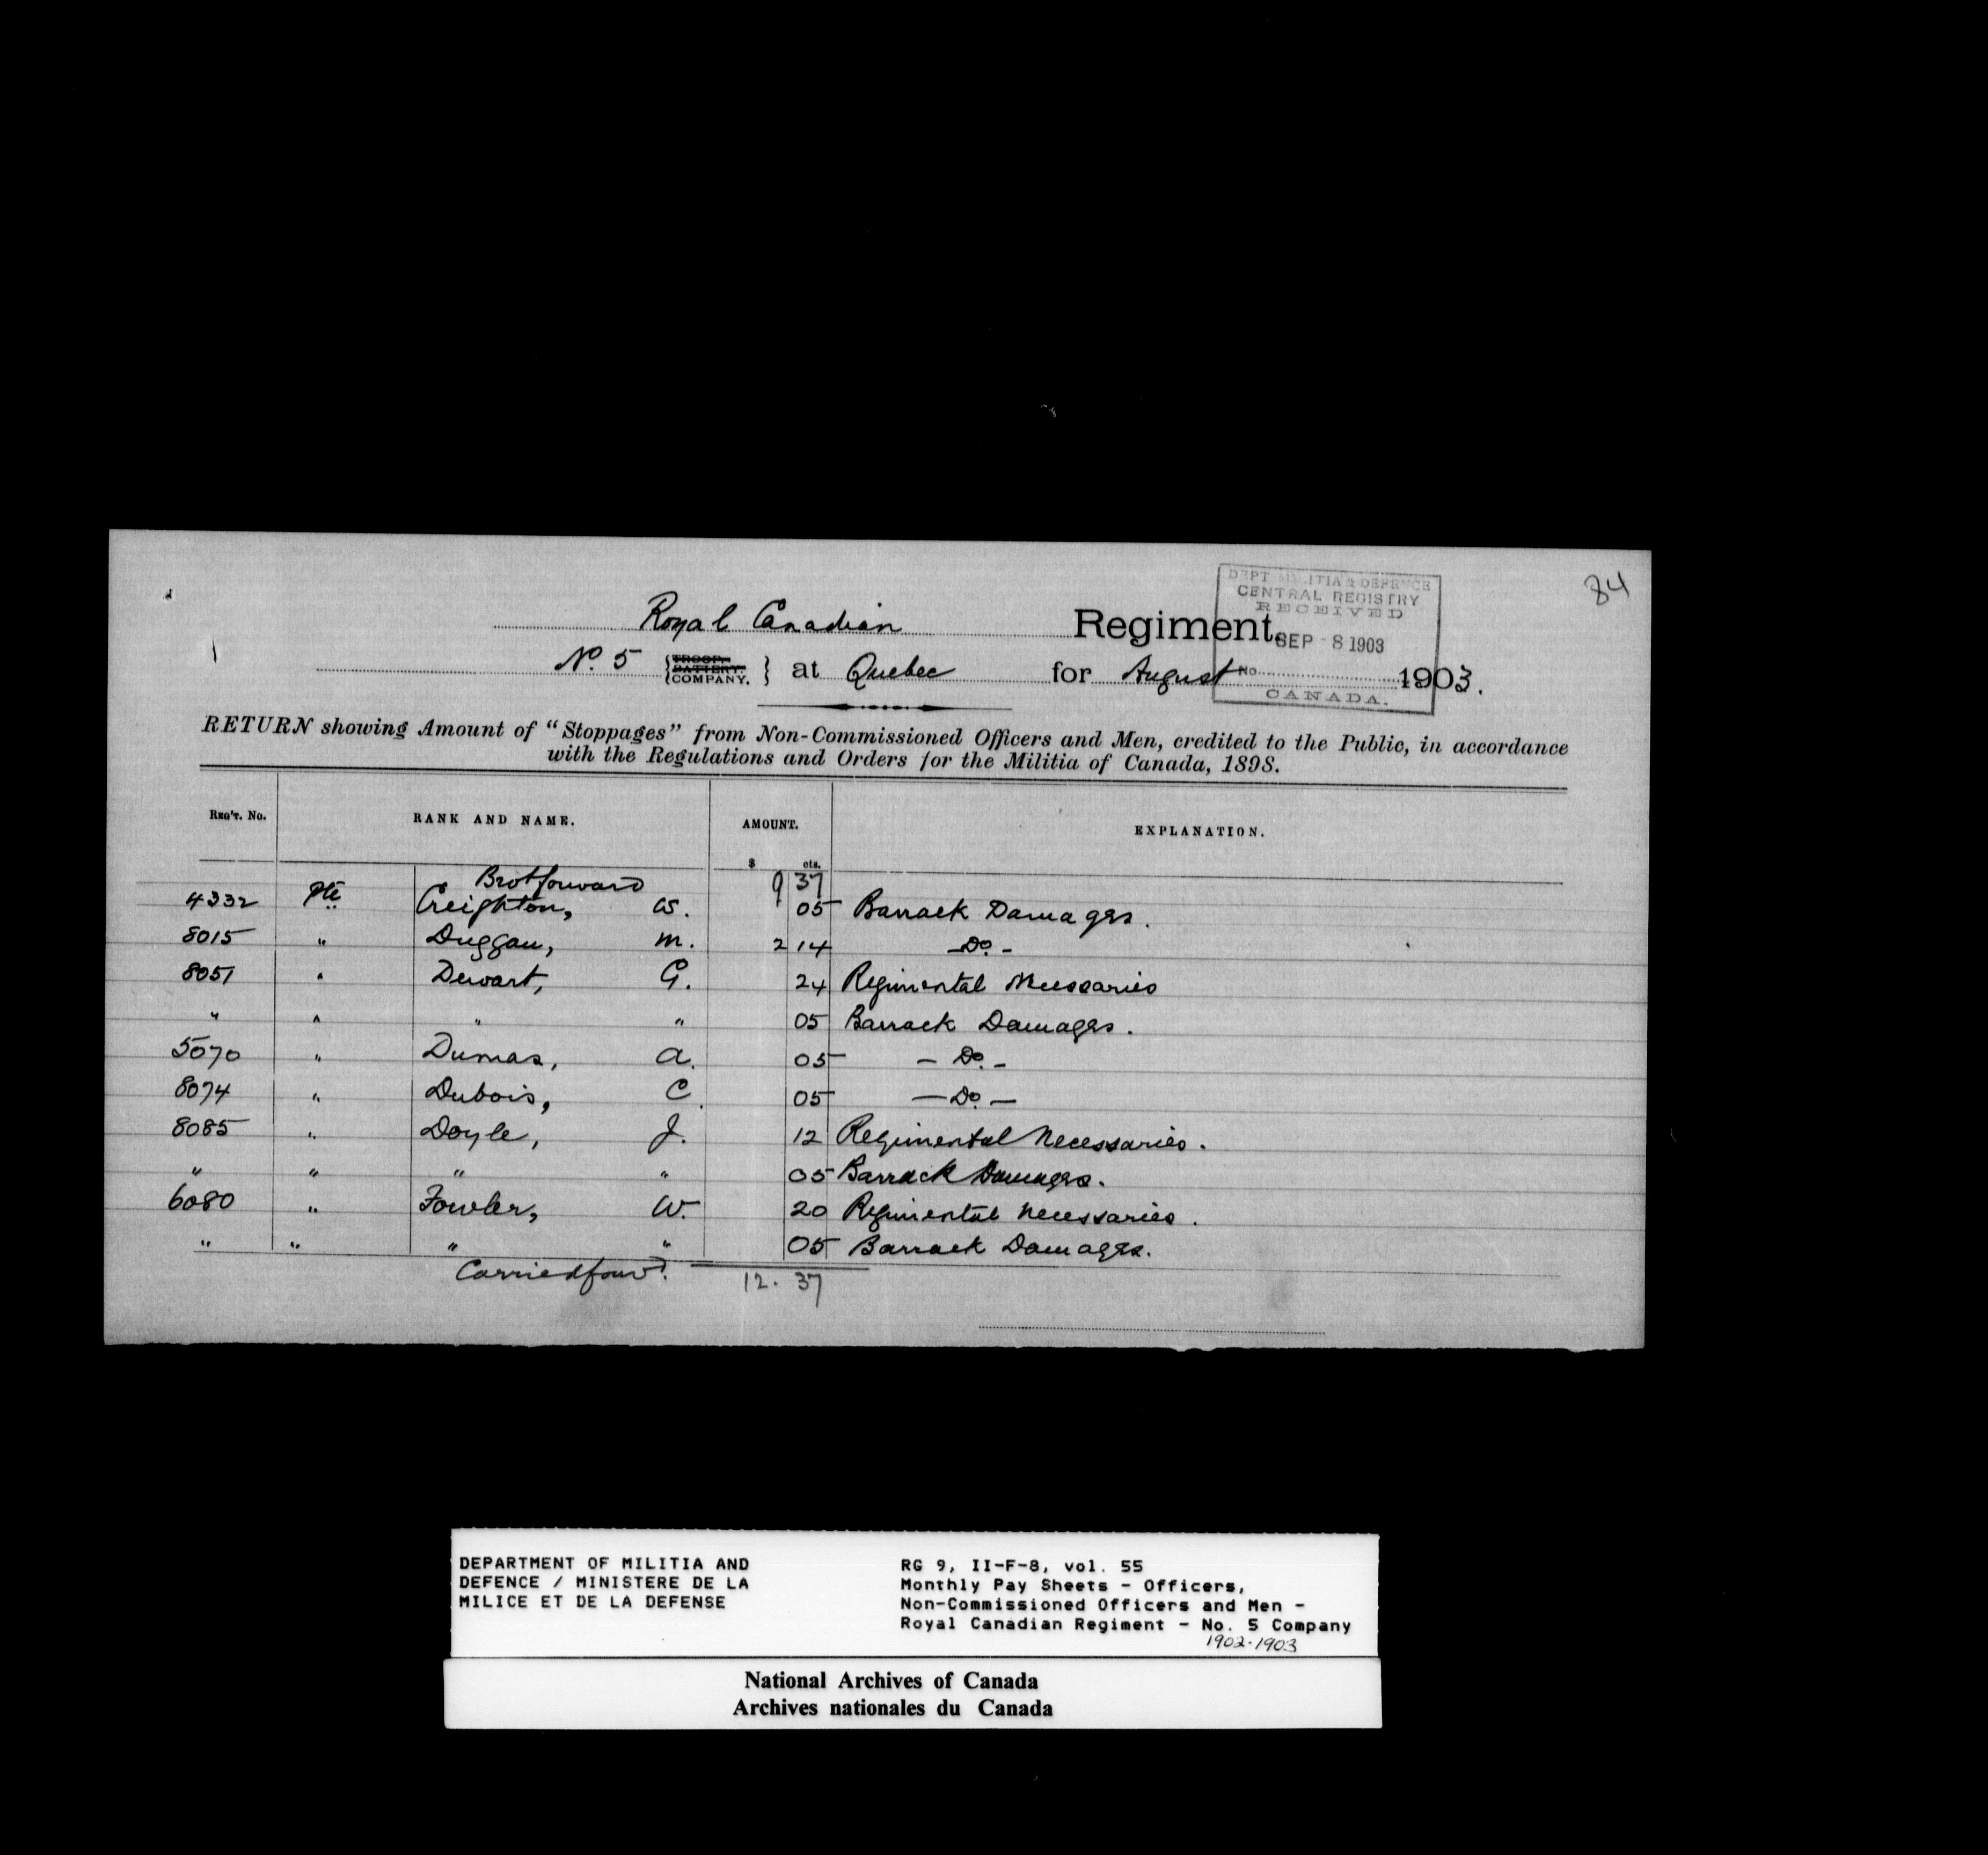 84
DEPT MILITIA & DEFENCE
CENTRAL REGISTRY
RECEIVED
SEP - 8 1903
No.
CANADA.
Royal Canadian Regiment.
No. 5 { TROOP. BATTERY. COMPANY. } at Quebec for August 1903.
RETURN showing Amount of “Stoppages” from Non-Commissioned Officers and Men, credited to the Public, in accordance
with the Regulations and Orders for the Militia of Canada, 1898.
REG'T. No. RANK AND NAME. AMOUNT. EXPLANATION.
$ cts.
Brot forward 9 37
4332 Pte Creighton, W. 05 Barrack Damages.
8015 " Duggan, M. 2 14 - Do. -
8051 " Dewart, G. 24 Regimental Necessaries
" " " " 05 Barrack Damages.
5070 " Dumas, A. 05 - Do. -
8074 " Dubois, C. 05 - Do. -
8085 " Doyle, J. 12 Regimental Necessaries.
" " " " 05 Barrack Damages.
6080 " Fowler, W. 20 Regimental Necessaries.
" " " " 05 Barrack Damages.
Carried forwd. 12. 37
DEPARTMENT OF MILITIA AND
DEFENCE / MINISTERE DE LA
MILICE ET DE LA DEFENSE
RG 9, II-F-8, vol. 55
Monthly Pay Sheets - Officers,
Non-Commissioned Officers and Men -
Royal Canadian Regiment - No. 5 Company
1902-1903
National Archives of Canada
Archives nationales du Canada